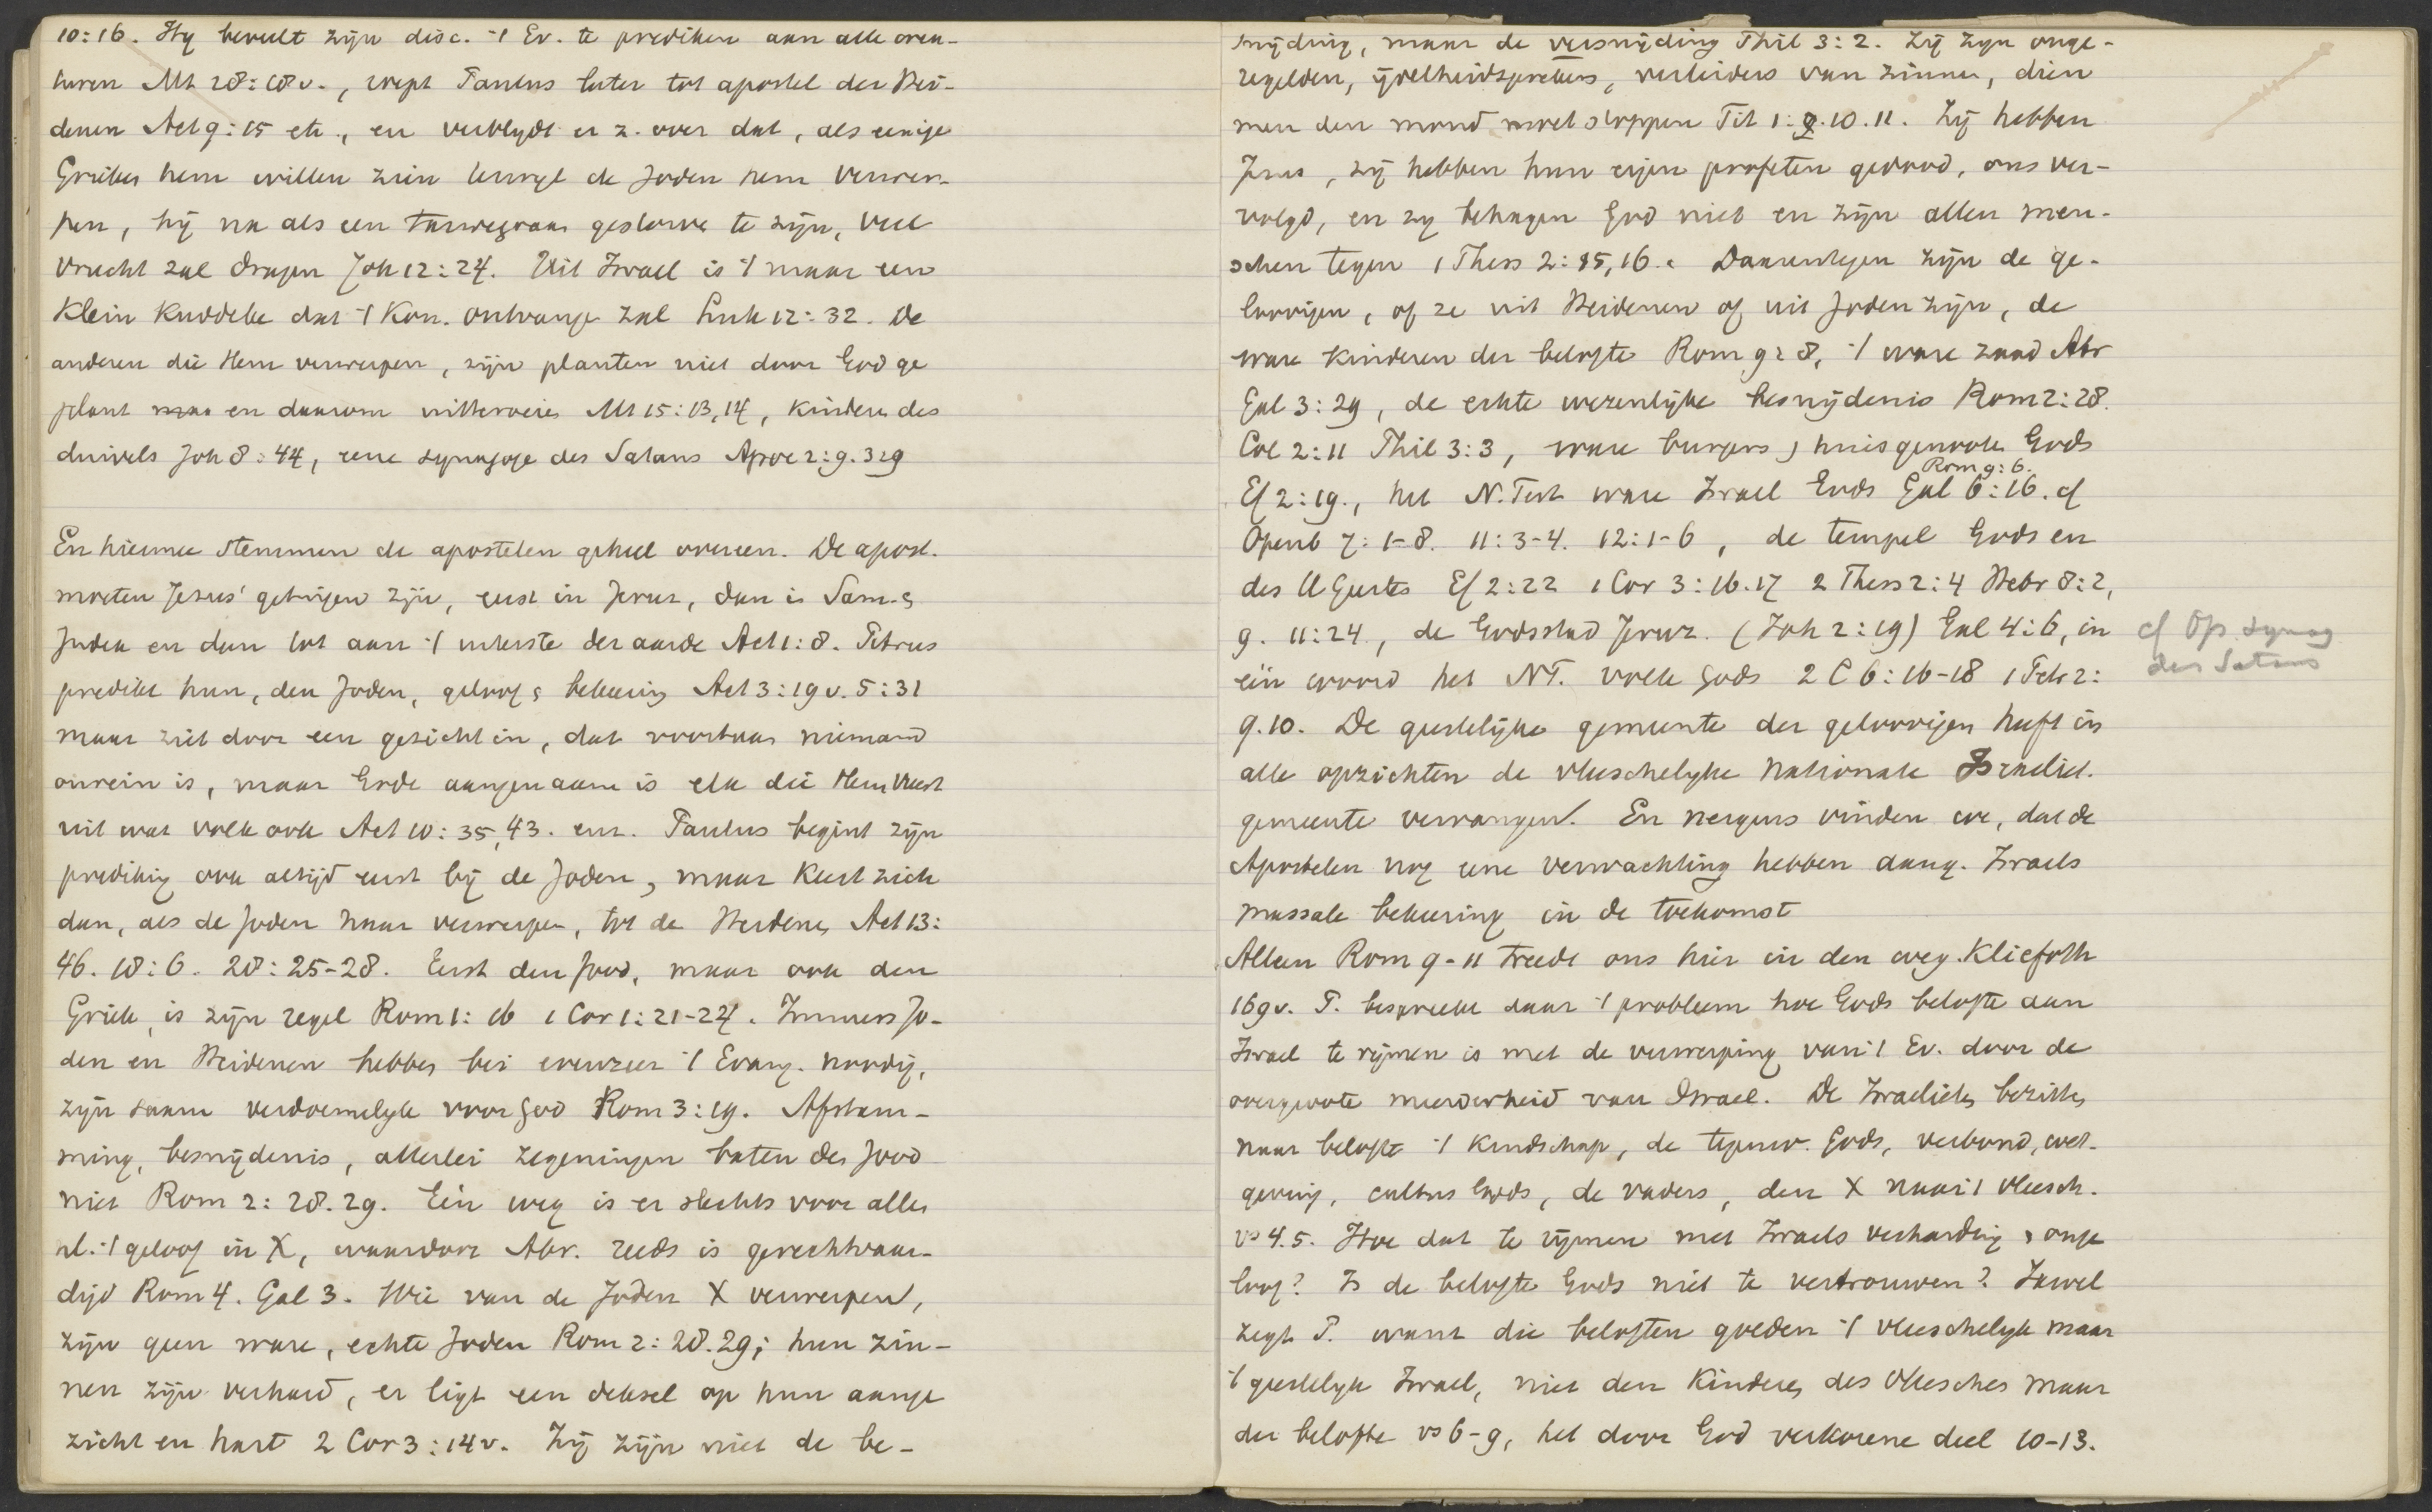 10:16. Hy beveelt zijn disc. 't Ev. te prediken aan alle crea-
turen Mt 28:18v., roept Paulus later tot apostel der Hei-
denen Act 9:15 etc., en verblydt er z. over dat, als eenige
Grieken hem willen zien terwyl de Joden hem verwer-
pen, hij na als een tarwegraan gestorve te zijn, veel
vrucht zal dragen Joh 12:24. Uit Israel is 't maar een
Klein Kuddeke dat 't Kon. ontvange zal Luk 12:32. De
anderen die Hem verwerpen, zijn planten niet door God ge
plant maa en daarom uitteroeien Mt 15:13,14, Kinderen des
duivels Joh 8:44, eene synagoge des Satans Apoc 2:9. 3:9
En hiermee stemmen de apostelen geheel overeen. De apost.
moeten Jesus' getuigen zijn, eerst in Jeruz, dan in Sam. &
Judea en dan tot aan 't uiterste der aarde Act 1:8. Petrus
predikt hun, den Joden, geloof & bekeering Act 3:19v. 5:31
maar ziet door een gezicht in, dat voortaan niemand
onrein is, maar Gode aangenaam is elk die Hem vreest
uit wat volk ook Act 10:35,43. enz. Paulus begint zijn
prediking ook altijd eerst bij de Joden, maar Keert zich
dan, als de Joden haar verwerpen, tot de Heidenen Act 13:
46. 18:6. 28:25-28. Eerst den Jood, maar ook den
Griek, is zijn regel Rom 1:16 1 Cor 1:21-24. Immers Jo-
den en Heidenen hebben bei evenzeer 't Evang. noodig,
zijn saam verdoemelyk voor God Rom 3:19. Afstam-
ming, besnijdenis, allerlei zegeningen baten des Jood
niet Rom 2:28.29. Eén weg is er slechts voor allen
nl. 't geloof in X, waardoor Abr. reeds is gerechtvaar-
digd Rom 4. Gal 3. Wie van de Joden X verwerpen,
zijn geen ware, echte Joden Rom 2:28.29; hun zin-
nen zijn verhard, er ligt een deksel op hun aange
zicht en hart 2 Cor 3:14v. Zij zijn niet de be-
snijding, maar de versnijding Phil 3:2. Zij zijn onge-
regelden, ijdelheidsprekers, verleiders van zinnen, dien
men den mond moet stoppen Tit 1:9.10.11. Zij hebben
Jezus, zij hebben hun eigen profeten gedood, ons ver-
volgd, en zy behagen God niet en zijn allen men-
schen tegen 1 Thess 2:15,16. Daarentegen zijn de ge-
loovigen, of ze uit Heidenen of uit Joden zijn, de
ware Kinderen der belofte Rom 9:8, 't ware zaad Abr
Gal 3:29, de echte wezenlijke besnijdenis Rom 2:28.
Col 2:11 Phil 3:3, ware burgers & huisgenoten Gods
Rom 9:6.
Ef 2:19., het N. Test ware Israel Gods Gal 6:16. cf
Openb 7:1-8. 11:3-4. 12:1-6, de tempel Gods en
des H Geestes Ef 2:22 1 Cor 3:16.17 2 Thess 2:4 Hebr 8:2,
9. 11:24., de Godsstad Jeruz. (Joh 2:19) Gal 4:6, in
één woord het NT. volk Gods 2 C 6:16-18 1 Petr 2:
cf Op. synag
des Satans
9.10. De geestelijke gemeente der geloovigen heeft in
alle opzichten de vleeschelyke nationale Israelit.
gemeente vervangen. En nergens vinden we, dat de
Apostelen nog eene verwachting hebben aang. Israels
massale bekeering in de toekomst
Alleen Rom 9-11 treedt ons hier in den weg. Kliefoth
169v. P. bespreekt daar 't probleem hoe Gods belofte aan
Israel te rijmen is met de verwerping van 't Ev. door de
overgroote meerderheid van Israel. De Israelieten bezitten
naar belofte 't Kindschap, de tegenw. Gods, verbond, wet-
geving, cultus Gods, de vaders, den X naar 't vleesch.
vs 4.5. Hoe dat te rijmen met Israels verharding & onge
loof? Is de belofte Gods niet te vertrouwen? Jawel
zegt P. want die beloften golden 't vleeschelyk maar
't geestelyk Israel, niet den Kinderen des vleesches maar
der belofte vs 6-9, het door God verkorene deel 10-13.